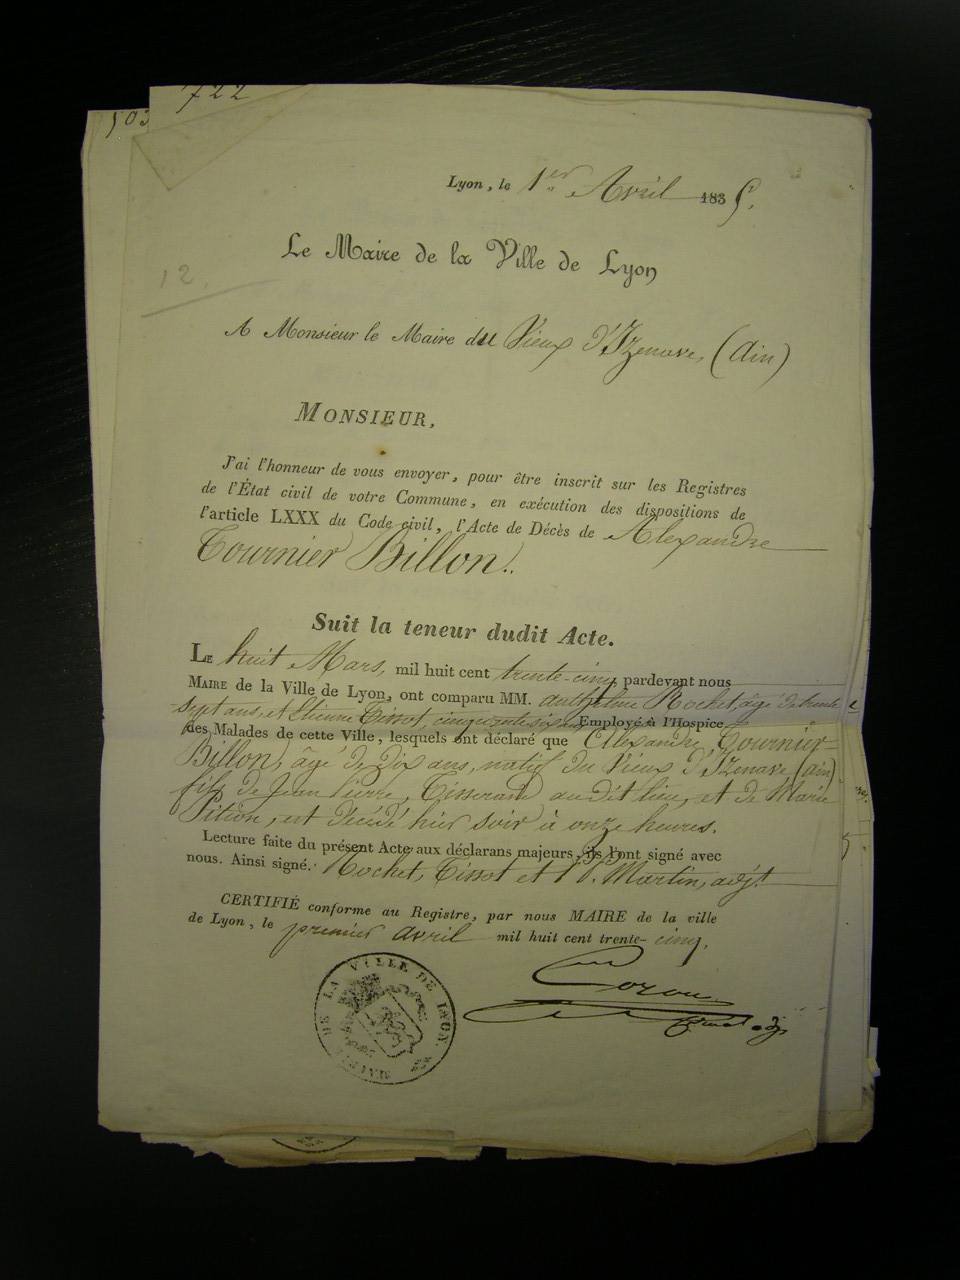 722
503
Lyon, le 1er Avril 1835.
Le Maire de la Ville de Lyon
12.
A Monsieur le Maire du Vieux d'Izenave, (Ain)
MONSIEUR,
J'ai l'honneur de vous envoyer, pour être inscrit sur les Registres
de l'État civil de votre Commune, en exécution des dispositions de
l'article LXXX du Code civil, l'Acte de Décès de Alexandre
Tournier Billon..
Suit la teneur dudit Acte.
LE huit Mars, mil huit cent trente-cinq pardevant nous
MAIRE de la Ville de Lyon, ont comparu MM. anthelme Rochet, âgé de trente
sept ans, et Etienne Tissot, cinquante six ans, Employé à l'Hospice
des Malades de cette Ville, lesquels ont déclaré que Alexandre, Tournier-
Billon, âgé de dix ans, natif du Vieux d'Izenave, (ain)
fils de Jean Pierre, Tisserand audit lieu, et de Marie
Pition, est décédé hier soir à onze heures.
Lecture faite du présent Acte aux déclarans majeurs, ils l'ont signé avec
nous. Ainsi signé: Rochet, Tissot et Martin, adjt
CERTIFIÉ conforme au Registre, par nous MAIRE de la ville
de Lyon, le premier avril mil huit cent trente-cinq.
MAIRIE DE LA VILLE DE LYON